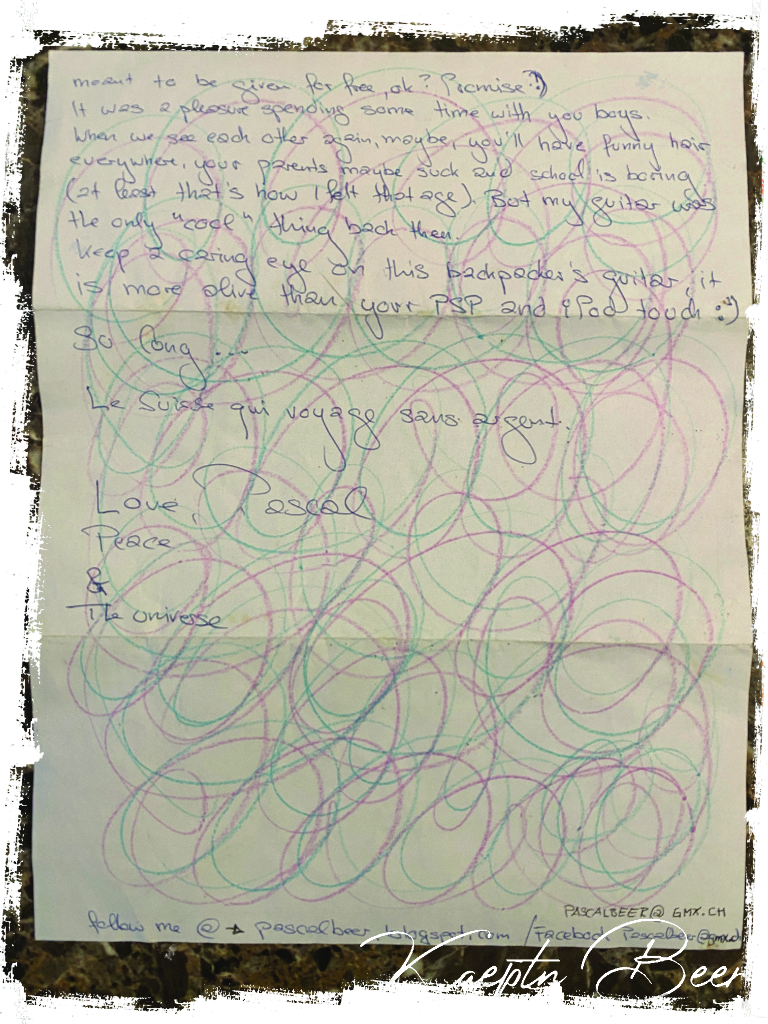 meant to be given for free, ok? Promise? :)
It was a pleasure spending some time with you boys.
When we see each other again, maybe, you'll have funny hair
everywhere, your parents maybe suck and school is boring
(at least that's how I felt that age). But my guitar was
the only "cool" thing back then.
Keep a caring eye on this backpacker's guitar, it
is more alive than your PSP and iPod touch :)
So long ...
Le Suisse qui voyage sans argent.
Love, Pascal
Peace
&
The universe
PASCALBEER@GMX.CH
follow me @ → pascalbeer.blogspot.com / Facebook Pascalbeer@gmx.ch
Kaeptn Beer